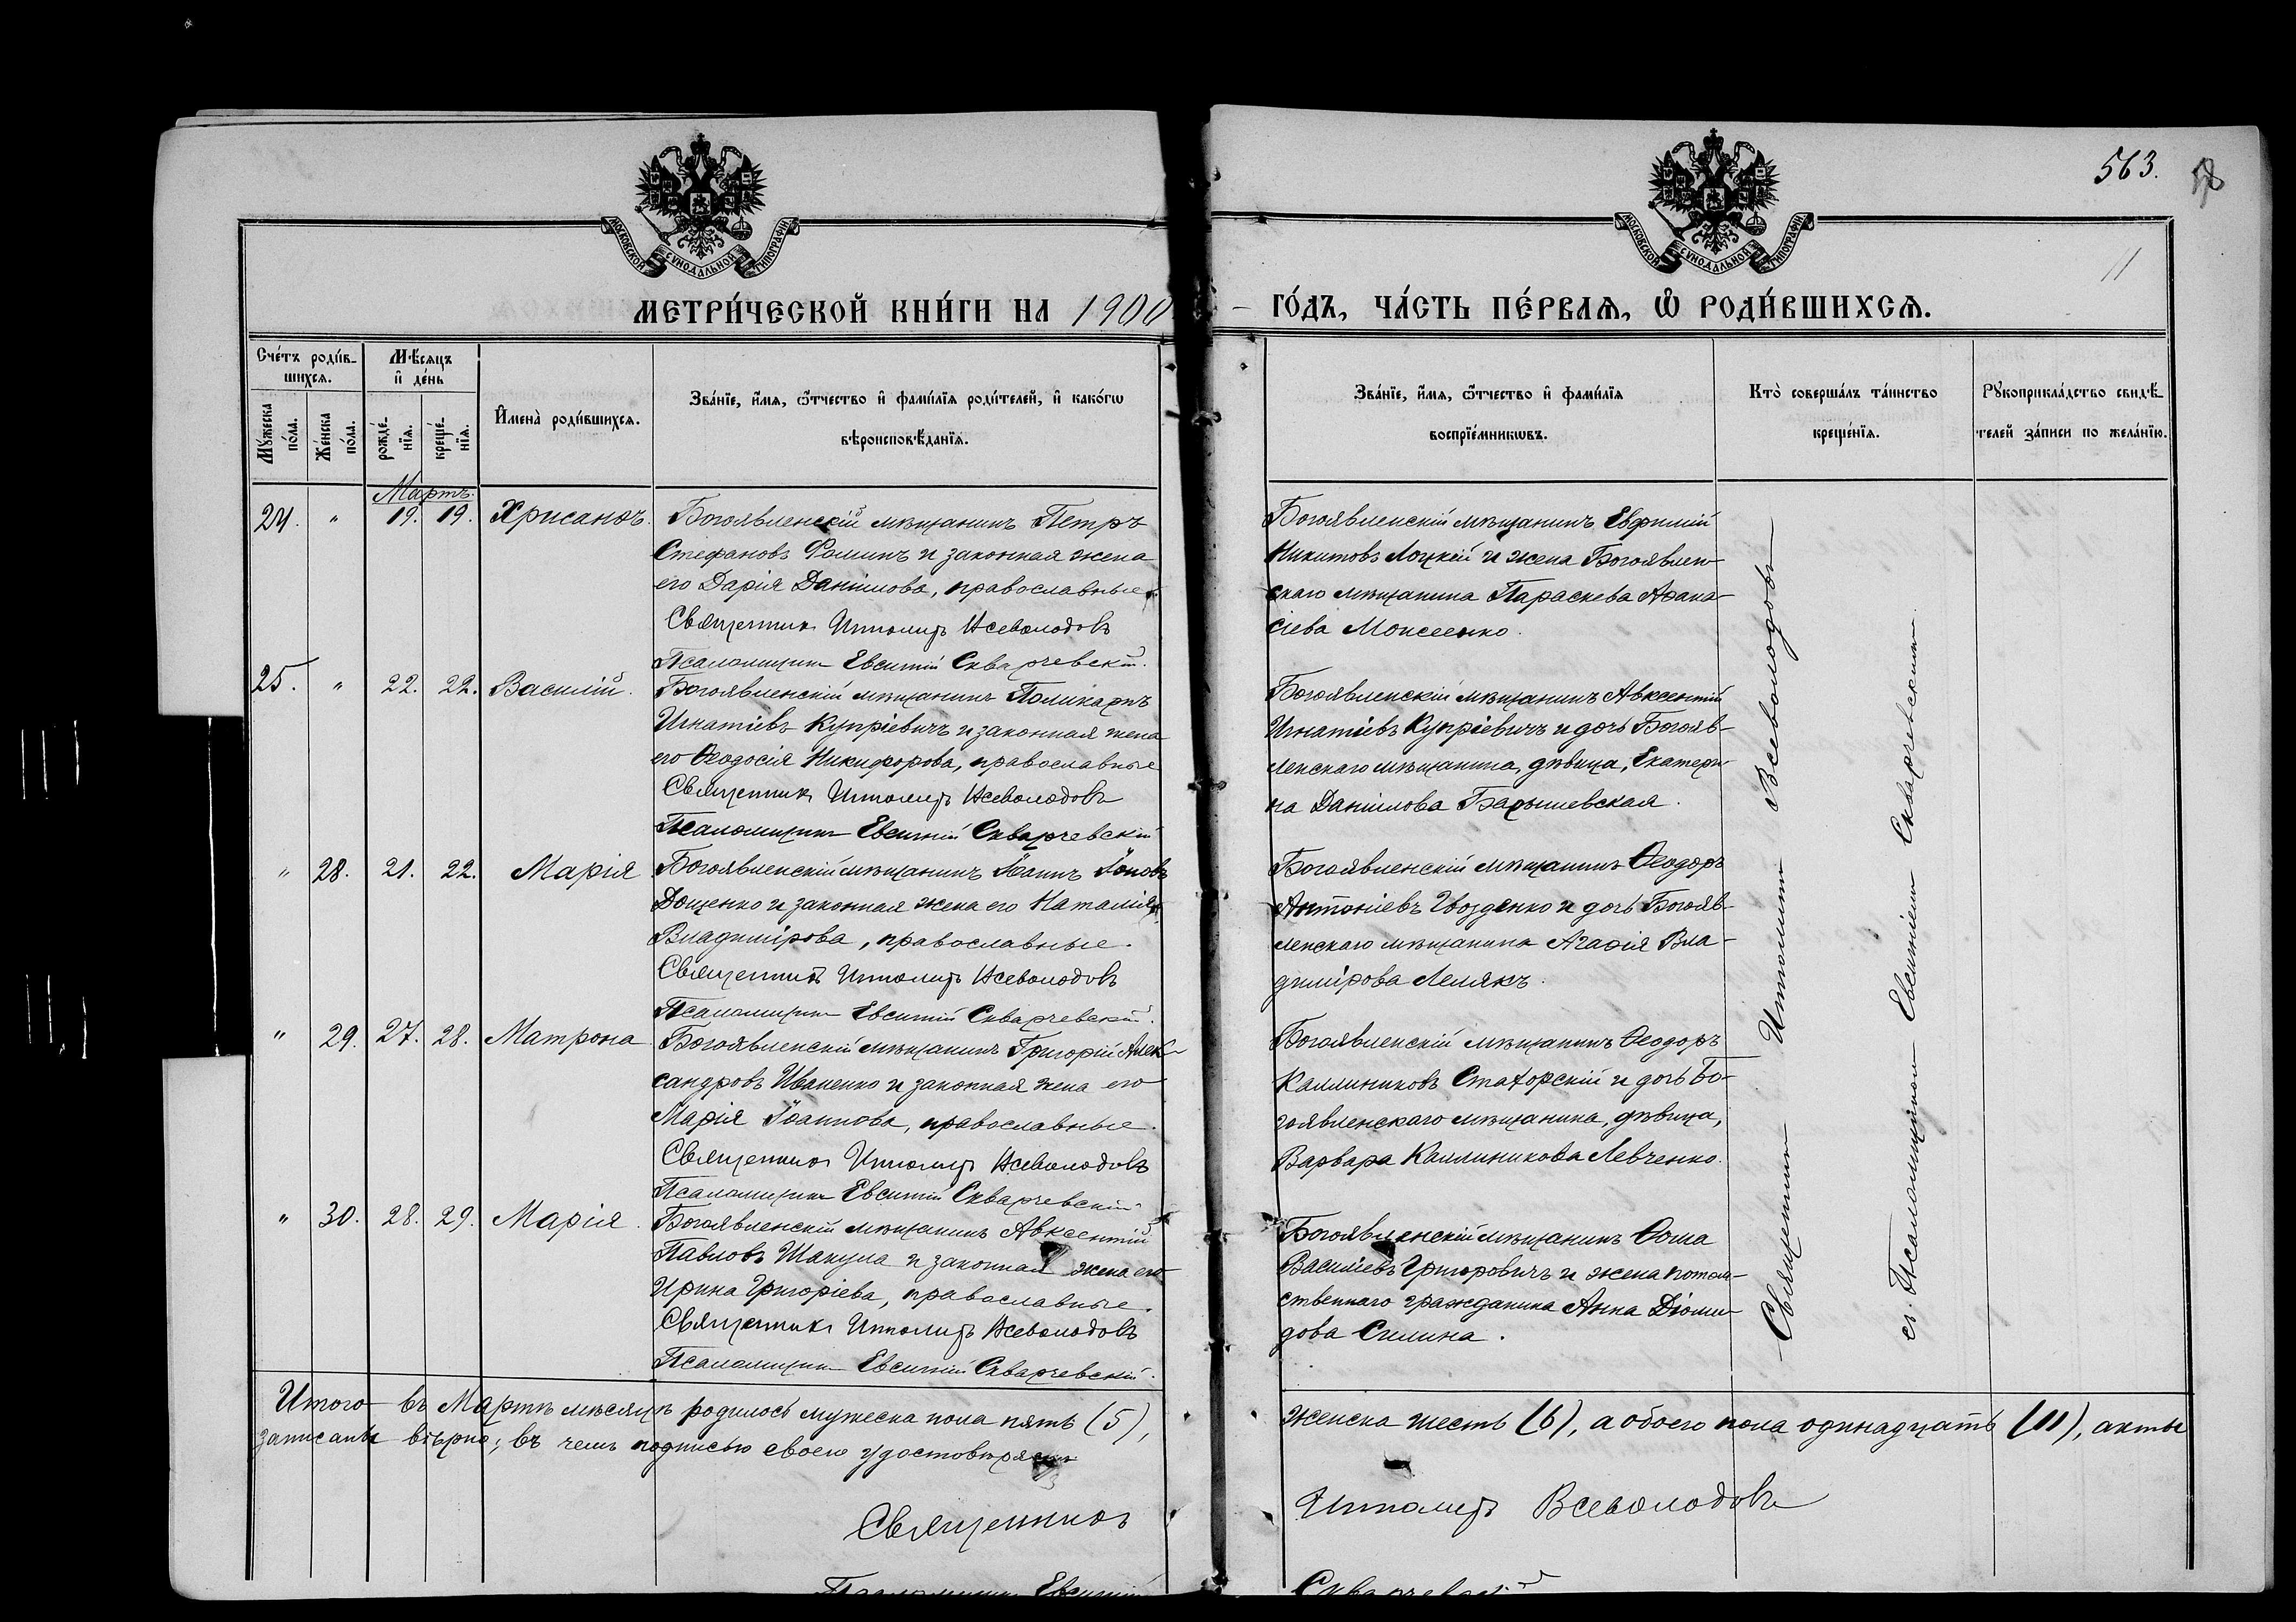 563.
11
МОСКОВСКОЙ СѴНОДАЛЬНОЙ ТИПОГРАФІИ
МОСКОВСКОЙ СѴНОДАЛЬНОЙ ТИПОГРАФІИ
МЕТРИ́ЧЕСКОЙ КНИ́ГИ НА 1900 ГО́ДЪ, ЧА́СТЬ ПЕ́РВАѦ, Ѡ РОДИ́ВШИХСѦ.
Сче́тъ роди́в-
шихсѧ.
Мꙋжеска
по́ла.
Же́нска
по́ла.
Мѣ́сѧцъ
и҆ де́нь
рожде́-
нїѧ.
креще́-
нїѧ.
И҆мена̀ роди́вшихсѧ.
Зва́нїе, и҆́мѧ, ѻ҆́тчество и҆ фами́лїѧ роди́телей, и҆ како́гѡ
вѣроисповѣ́данїѧ.
Зва́нїе, и҆́мѧ, ѻ҆́тчество и҆ фами́лїѧ
воспрїе́мникѡвъ.
Кто̀ соверша́лъ та́инство
креще́нїѧ.
Рꙋкоприкла́дство свидѣ́-
телей за́писи по жела́нїю.
Мартъ.
24. " 19. 19. Хрисанѳъ.
Богоявленскій мѣщанинъ Петръ
Стефановъ Фоминъ и законная жена
его Дарія Даніилова, православные.
Священникъ Ипполитъ Всеволодовъ
Псаломщикъ Евсигній Скварчевскій.
Богоявленскій мѣщанинъ Евфимій
Никитовъ Лоцкій и жена Богоявлен-
скаго мѣщанина Параскева Аѳана-
сіева Моисеенко.
25. " 22. 22. Василій.
Богоявленскій мѣщанинъ Поликарпъ
Игнатіевъ Купріевичъ и законная жена
его Ѳеодосія Никифорова, православные
Священникъ Ипполитъ Всеволодовъ
Псаломщикъ Евсигній Скварчевскій
Богоявленскій мѣщанинъ Авксентій
Игнатіевъ Купріевичъ и дочь Богояв-
ленскаго мѣщанина, дѣвица, Екатери-
на Даніилова Барышевская.
" 28. 21. 22. Марія
Богоявленскій мѣщанинъ Іоаннъ Іоновъ
Дощенко и законная жена его Наталія
Владимірова, православные.
Священникъ Ипполитъ Всеволодовъ
Псаломщикъ Евсигній Скварчевскій.
Богоявленскій мѣщанинъ Ѳеодоръ
Антоніевъ Гвозденко и дочь Богояв-
ленскаго мѣщанина Агафія Вла-
димірова Лелякъ.
" 29. 27. 28. Матрона
Богоявленскій мѣщанинъ Григорій Алек-
сандровъ Иваненко и законная жена его
Марія Іоаннова, православные.
Священникъ Ипполитъ Всеволодовъ
Псаломщикъ Евсигній Скварчевскій
Богоявленскій мѣщанинъ Ѳеодоръ
Каллиниковъ Статорскій и дочь Бо-
гоявленскаго мѣщанина, дѣвица,
Варвара Каллиникова Левченко.
" 30. 28. 29. Марія.
Богоявленскій мѣщанинъ Авксентій
Павловъ Шакула и законная жена его
Ирина Григоріева, православные.
Священникъ Ипполитъ Всеволодовъ
Псаломщикъ Евсигній Скварчевскій.
Богоявленскій мѣщанинъ Ѳома
Василіевъ Григоровичъ и жена потом-
ственнаго гражданина Анна Діоми-
дова Силина.
Священникъ Ипполитъ Всеволодовъ
съ Псаломщикомъ Евсигніемъ Скварчевскимъ
Итого въ Мартѣ мѣсяцѣ родилось мужеска пола пять (5), женска шесть (6), а обоего пола одинадцать (11), акты
записаны вѣрно; въ чемъ подписью своею удостовѣряемъ
Священникъ Ипполитъ Всеволодовъ
Псаломщикъ Евсигній Скварчевскій